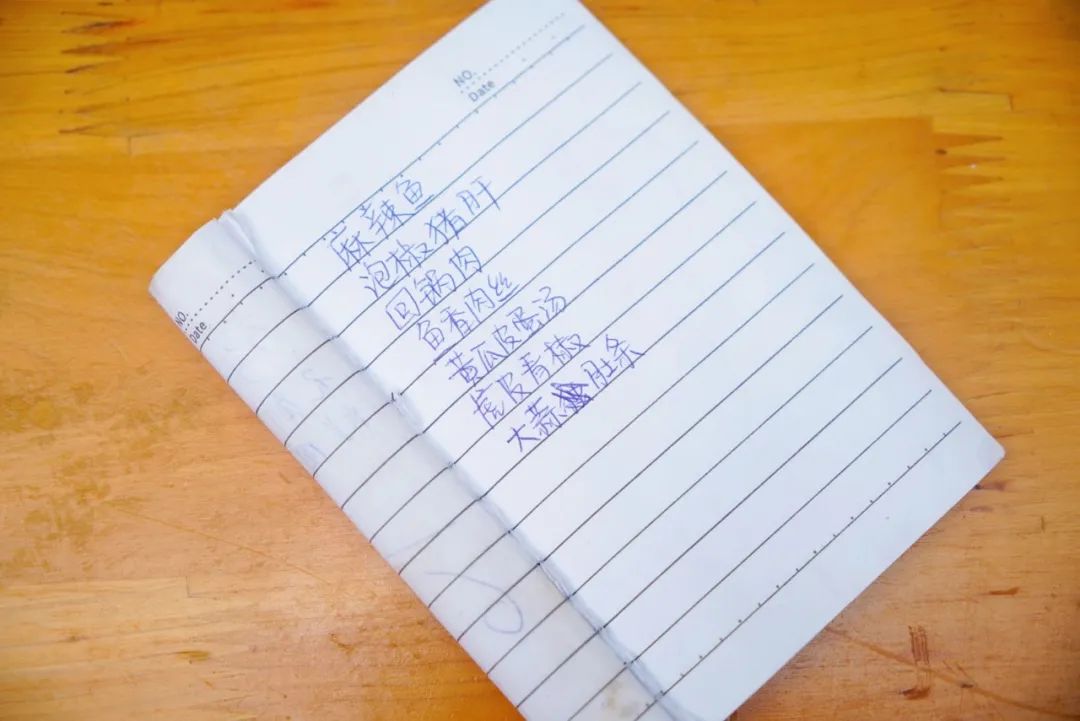 NO.
Date
麻辣鱼
泡椒猪肝
回锅肉
鱼香肉丝
黄瓜皮蛋汤
虎皮青椒
大蒜肚条
NO.
Date